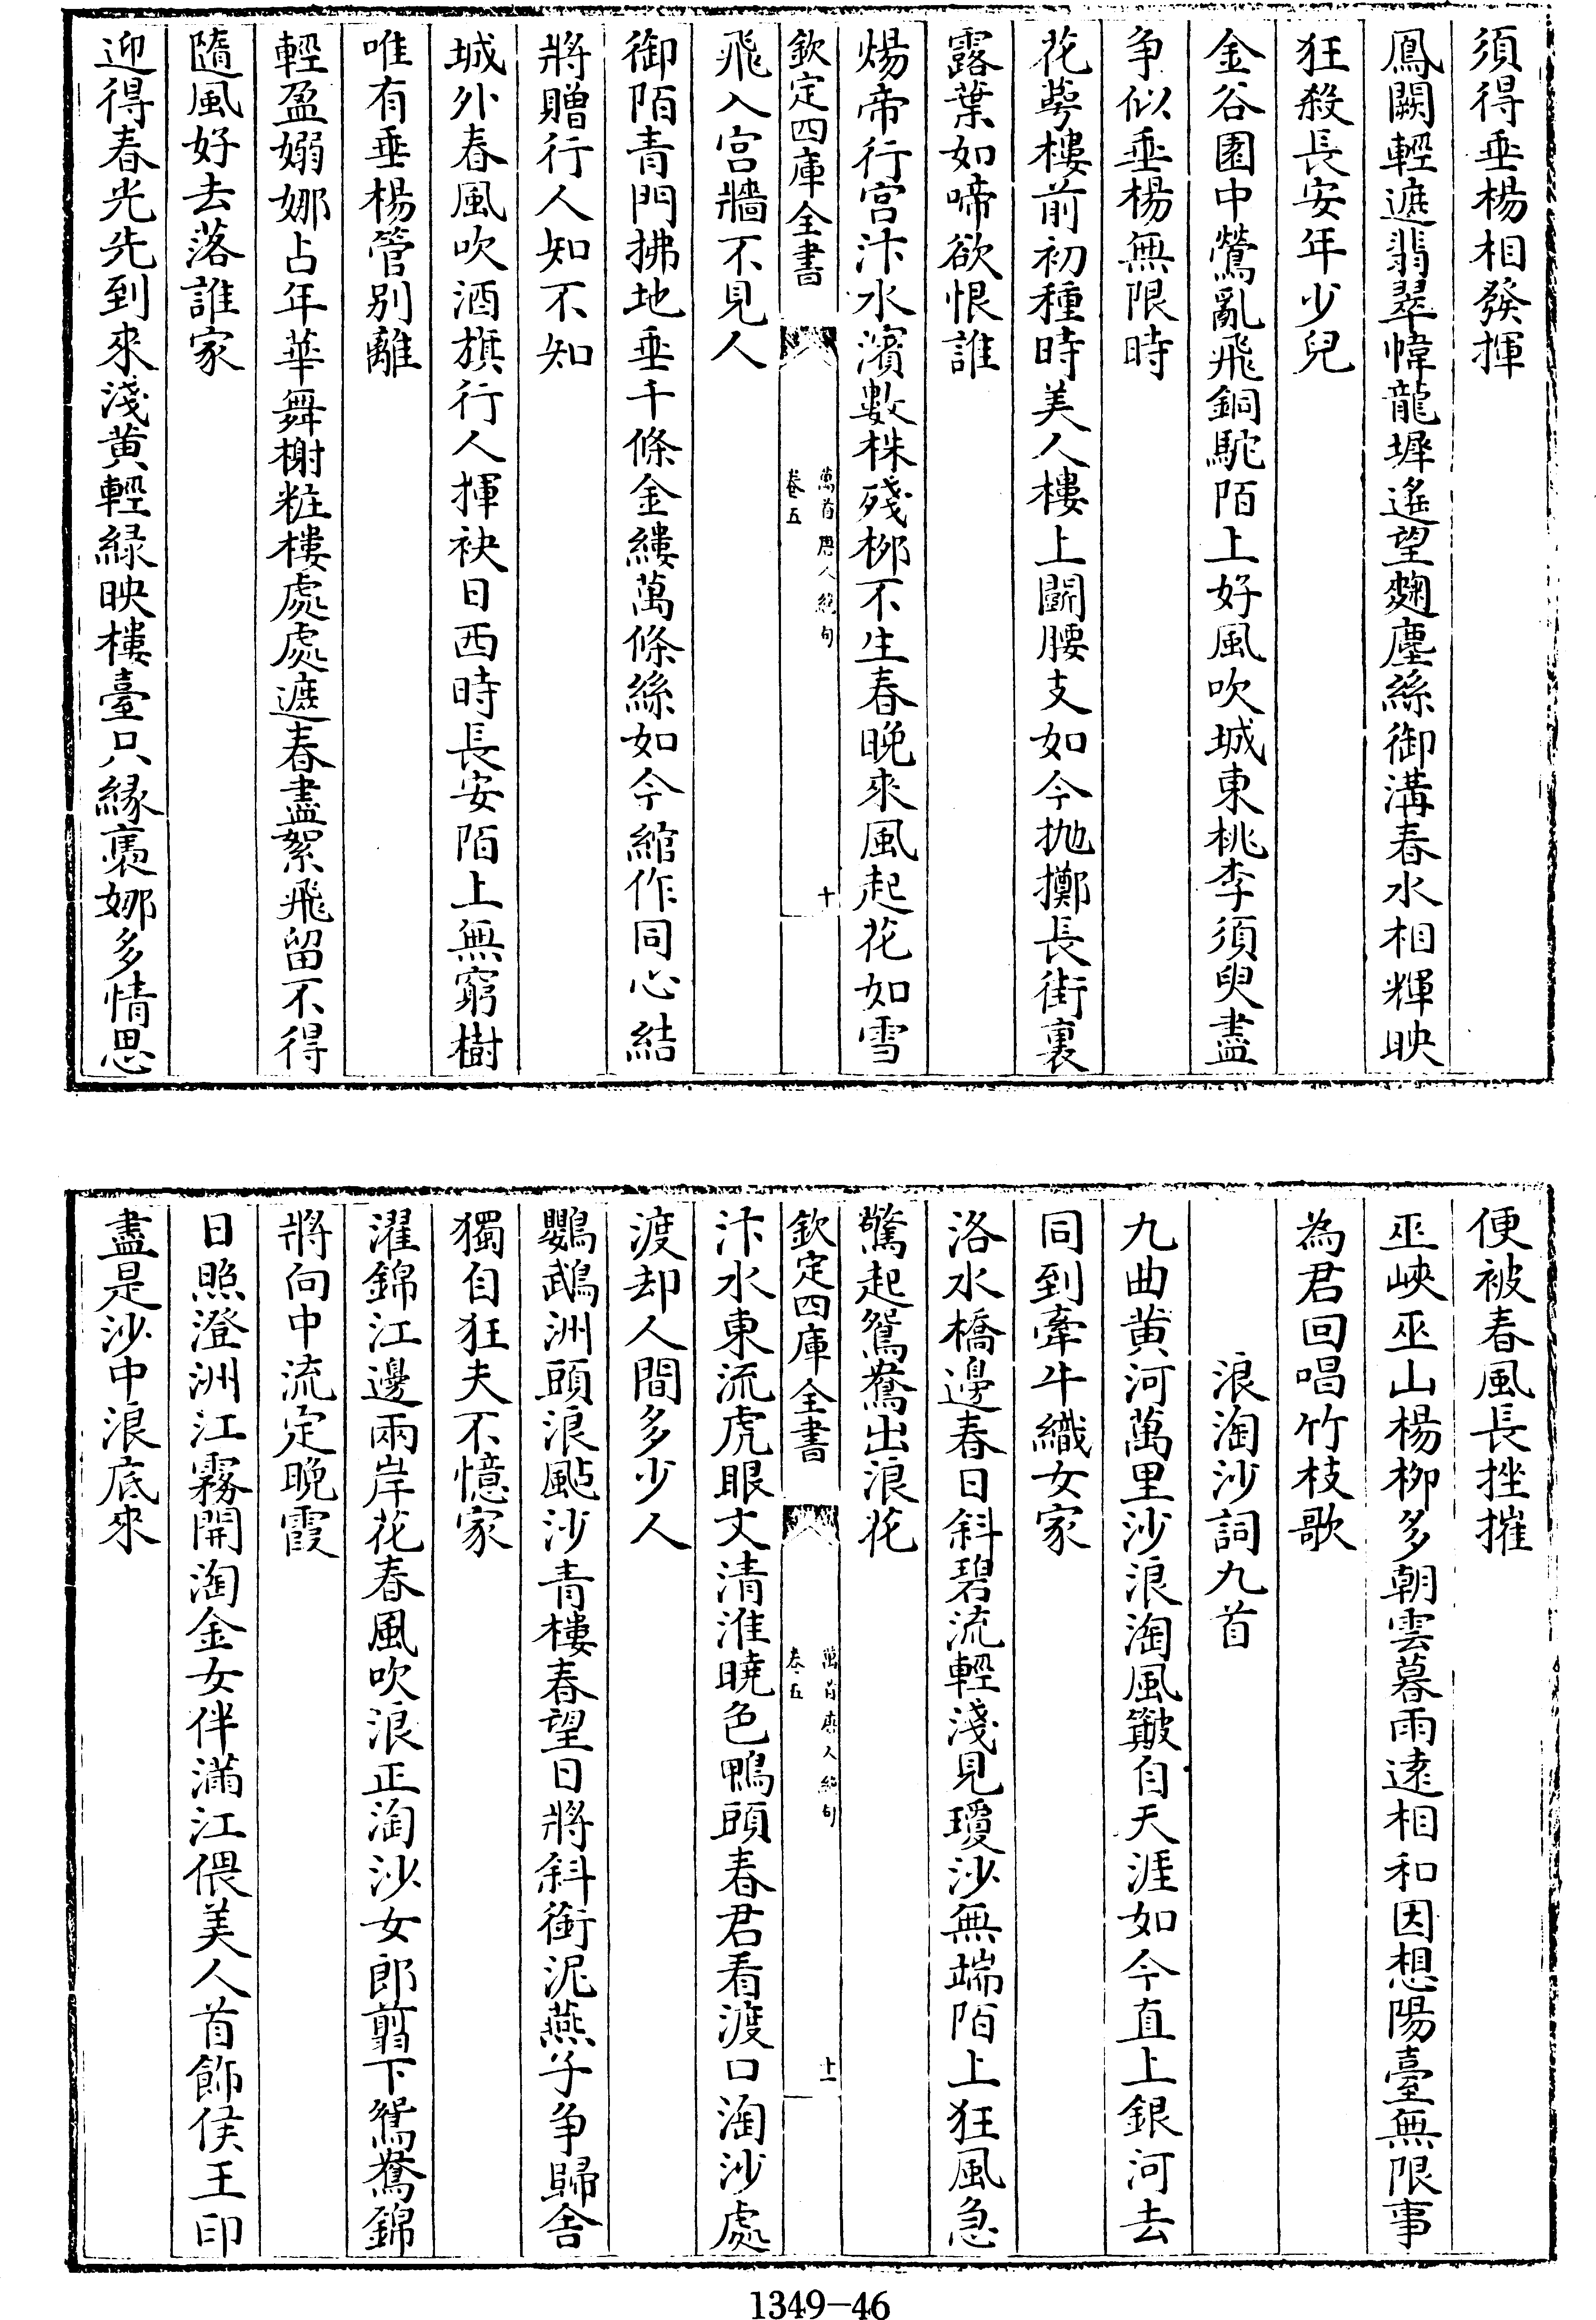 須得垂楊相發揮
鳳闕輕遮翡翠幃龍墀遙望麴塵絲御溝春水相輝映
狂殺長安年少兒
金谷園中鶯亂飛銅駝陌上好風吹城東桃李須臾盡
争似垂楊無限時
花萼樓前初種時美人樓上鬭腰支如今抛擲長街裏
露葉如啼欲恨誰
煬帝行宫汴水濱數株殘栁不生春晚來風起花如雪
欽定四庫全書
萬首唐人絶句
卷五
十
飛入宫牆不見人
御陌青門拂地垂千條金縷萬條絲如今綰作同心結
將贈行人知不知
城外春風吹酒旗行人揮袂日西時長安陌上無窮樹
唯有垂楊管别離
輕盈嫋娜占年華舞榭粧樓處處遮春盡絮飛留不得
隨風好去落誰家
迎得春光先到來淺黄輕緑映樓臺只緣褭娜多情思
便被春風長挫摧
巫峽巫山楊栁多朝雲暮雨遠相和因想陽臺無限事
為君回唱竹枝歌
浪淘沙詞九首
九曲黄河萬里沙浪淘風簸自天涯如今直上銀河去
同到牽牛織女家
洛水橋邊春日斜碧流輕淺見瓊沙無端陌上狂風急
驚起鴛鴦出浪花
欽定四庫全書
萬首唐人絶句
卷五
十一
汴水東流虎眼文清淮曉色鴨頭春君看渡口淘沙處
渡却人間多少人
鸚鵡洲頭浪颭沙青樓春望日將斜銜泥燕子争歸舍
獨自狂夫不憶家
濯錦江邊兩岸花春風吹浪正淘沙女郎翦下鴛鴦錦
將向中流定晚霞
日照澄洲江霧開淘金女伴滿江偎美人首飾侯王印
盡是沙中浪底來
1349-46